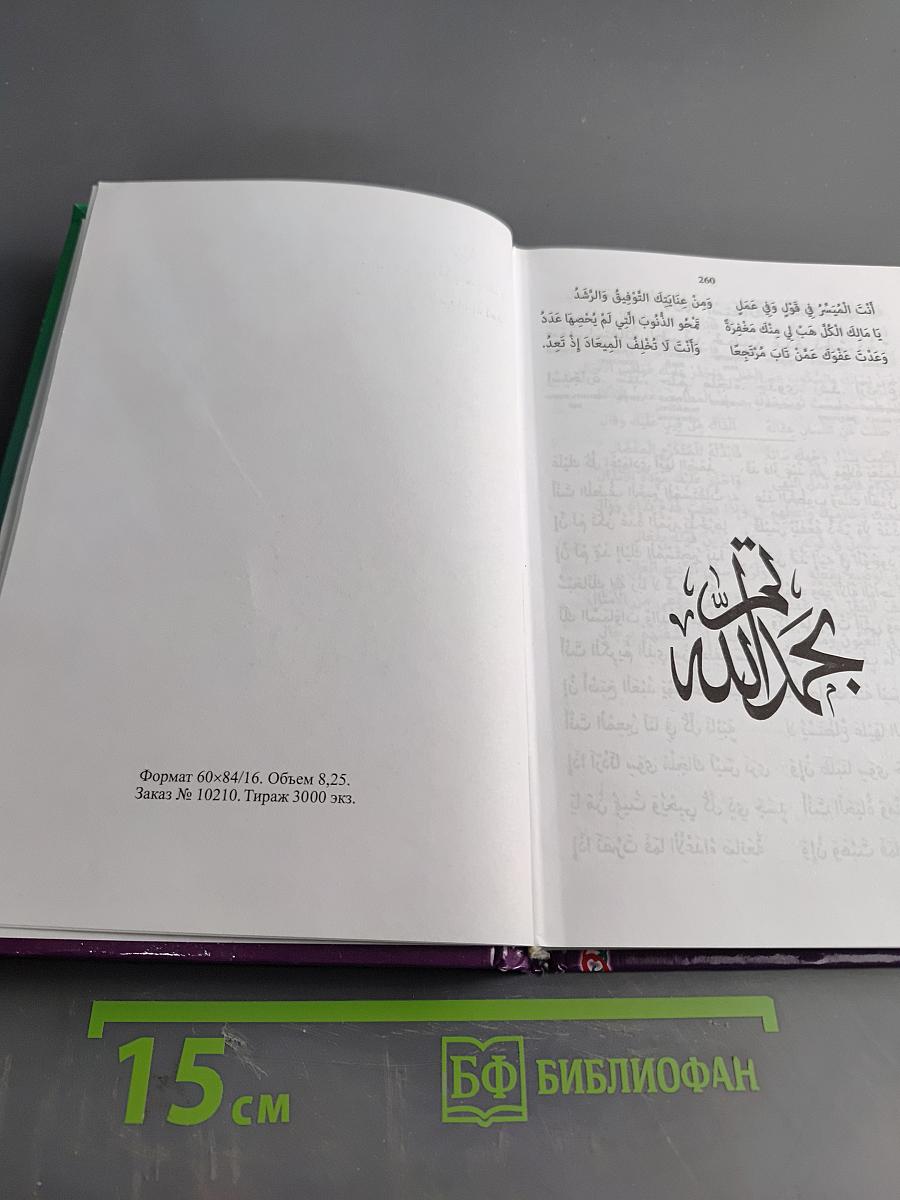 Формат 60×84/16. Объем 8,25.
Заказ № 10210. Тираж 3000 экз.
260
أَنْتَ الْمُيَسِّرُ فِي قَوْلٍ وَفِي عَمَلٍ وَمِنْ عِنَايَتِكَ التَّوْفِيقُ وَالرَّشَدُ
يَا مَالِكَ الْكُلِّ هَبْ لِي مِنْكَ مَغْفِرَةً تَمْحُو الذُّنُوبَ الَّتِي لَمْ يُحْصِهَا عَدَدُ
وَعَدْتَ عَفْوَكَ عَمَّنْ تَابَ مُرْتَجِعًا وَأَنْتَ لَا تُخْلِفُ الْمِيعَادَ إِذْ تَعِدُ.
تم
بحمد الله
15 см
БФ БИБЛИОФАН